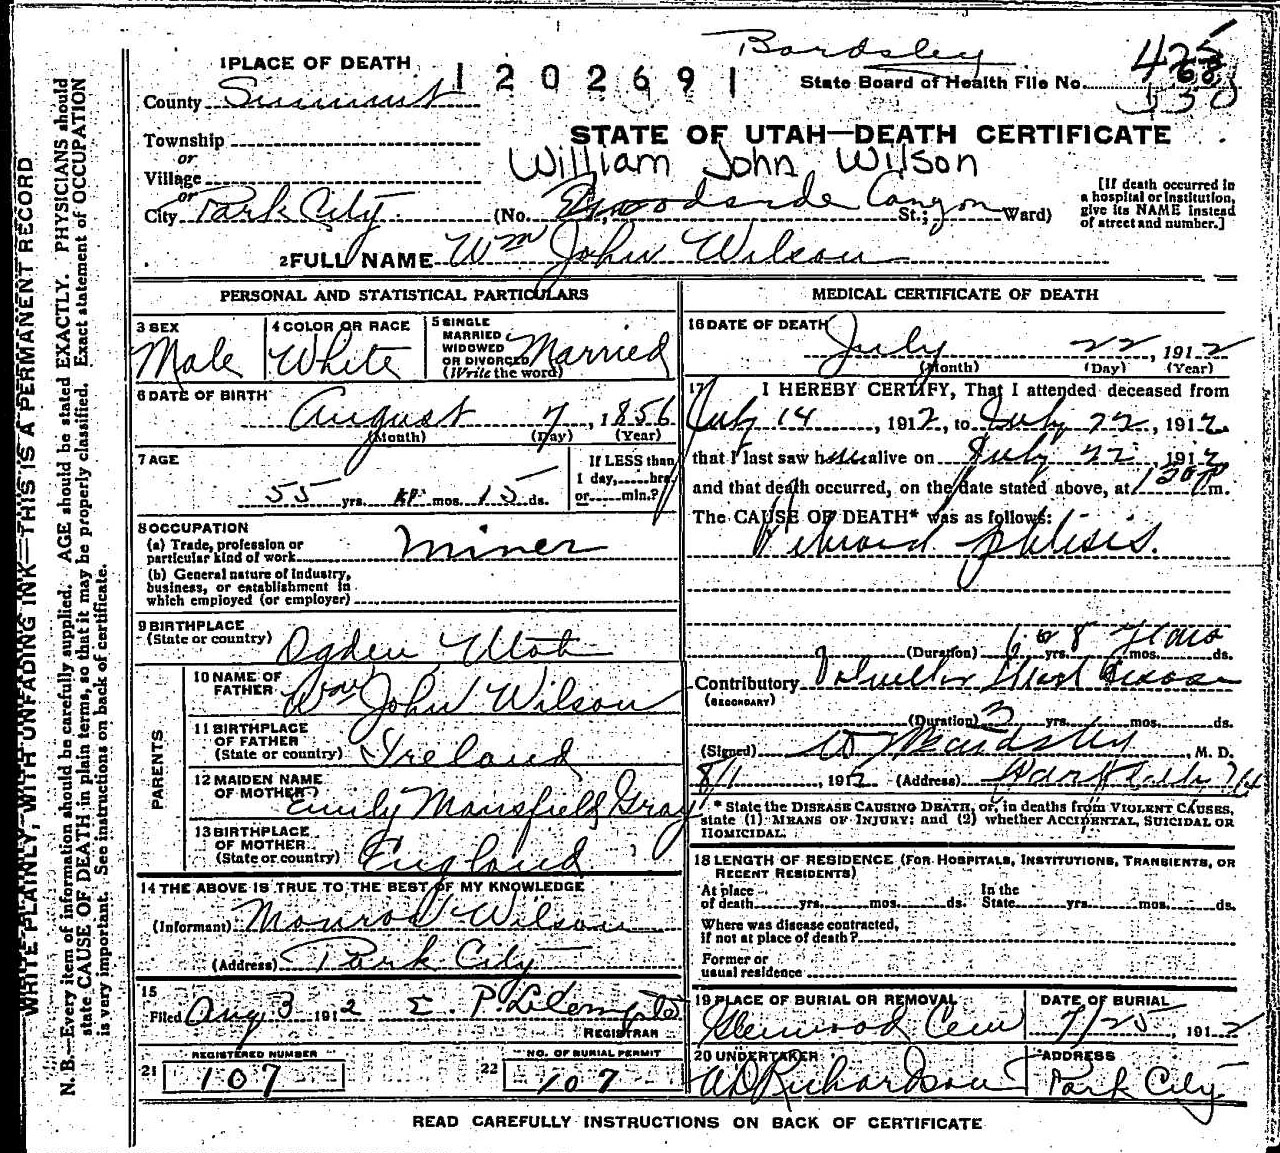 WRITE PLAINLY, WITH UNFADING INK—THIS IS A PERMANENT RECORD
N. B.—Every item of information should be carefully supplied. AGE should be stated EXACTLY. PHYSICIANS should
state CAUSE OF DEATH in plain terms, so that it may be properly classified. Exact statement of OCCUPATION
is very important. See instructions on back of certificate.
Bardsley
1 PLACE OF DEATH
1202691
State Board of Health File No. 425
County Summit
Township
STATE OF UTAH—DEATH CERTIFICATE
or
William John Wilson
Village
or
City Park City (No. Woodside Canyon St.; Ward)
[If death occurred in
a hospital or institution,
give its NAME instead
of street and number.]
2 FULL NAME Wm John Wilson
PERSONAL AND STATISTICAL PARTICULARS
3 SEX Male
4 COLOR OR RACE White
5 SINGLE
MARRIED
WIDOWED
OR DIVORCED
(Write the word) Married
6 DATE OF BIRTH
August 7, 1856
(Month) (Day) (Year)
7 AGE
55 yrs. mos. 15 ds.
If LESS than
1 day, hrs.
or min.?
8 OCCUPATION
(a) Trade, profession or
particular kind of work miner
(b) General nature of industry,
business, or establishment in
which employed (or employer)
9 BIRTHPLACE
(State or country) Ogden Utah
PARENTS
10 NAME OF
FATHER Wm John Wilson
11 BIRTHPLACE
OF FATHER
(State or country) Ireland
12 MAIDEN NAME
OF MOTHER Emily Mansfield Gray
13 BIRTHPLACE
OF MOTHER
(State or country) England
14 THE ABOVE IS TRUE TO THE BEST OF MY KNOWLEDGE
(Informant) Monroe Wilson
(Address) Park City
15
Filed Aug 3 1912 E. P.
REGISTRAR
REGISTERED NUMBER
21 107
NO. OF BURIAL PERMIT
22 107
MEDICAL CERTIFICATE OF DEATH
16 DATE OF DEATH
July 22, 1912
(Month) (Day) (Year)
17 I HEREBY CERTIFY, That I attended deceased from
July 14, 1912, to July 22, 1912.
that I last saw him alive on July 22 1912
and that death occurred, on the date stated above, at m.
The CAUSE OF DEATH* was as follows:
Fibroid phtisis.
(Duration) 6 or 8 years yrs. mos. ds.
Contributory Valvular Heart disease
(SECONDARY)
(Duration) 3 yrs. mos. ds.
(Signed) W J Bardsley, M. D.
8/1, 1912 (Address) Park City
* State the DISEASE CAUSING DEATH, or, in deaths from VIOLENT CAUSES,
state (1) MEANS OF INJURY; and (2) whether ACCIDENTAL, SUICIDAL OR
HOMICIDAL.
18 LENGTH OF RESIDENCE (FOR HOSPITALS, INSTITUTIONS, TRANSIENTS, OR
RECENT RESIDENTS)
At place
of death yrs. mos. ds.
In the
State yrs. mos. ds.
Where was disease contracted,
if not at place of death?
Former or
usual residence
19 PLACE OF BURIAL OR REMOVAL
Glenwood Cem
DATE OF BURIAL
7/25, 1912
20 UNDERTAKER
A D Richardson
ADDRESS
Park City
READ CAREFULLY INSTRUCTIONS ON BACK OF CERTIFICATE